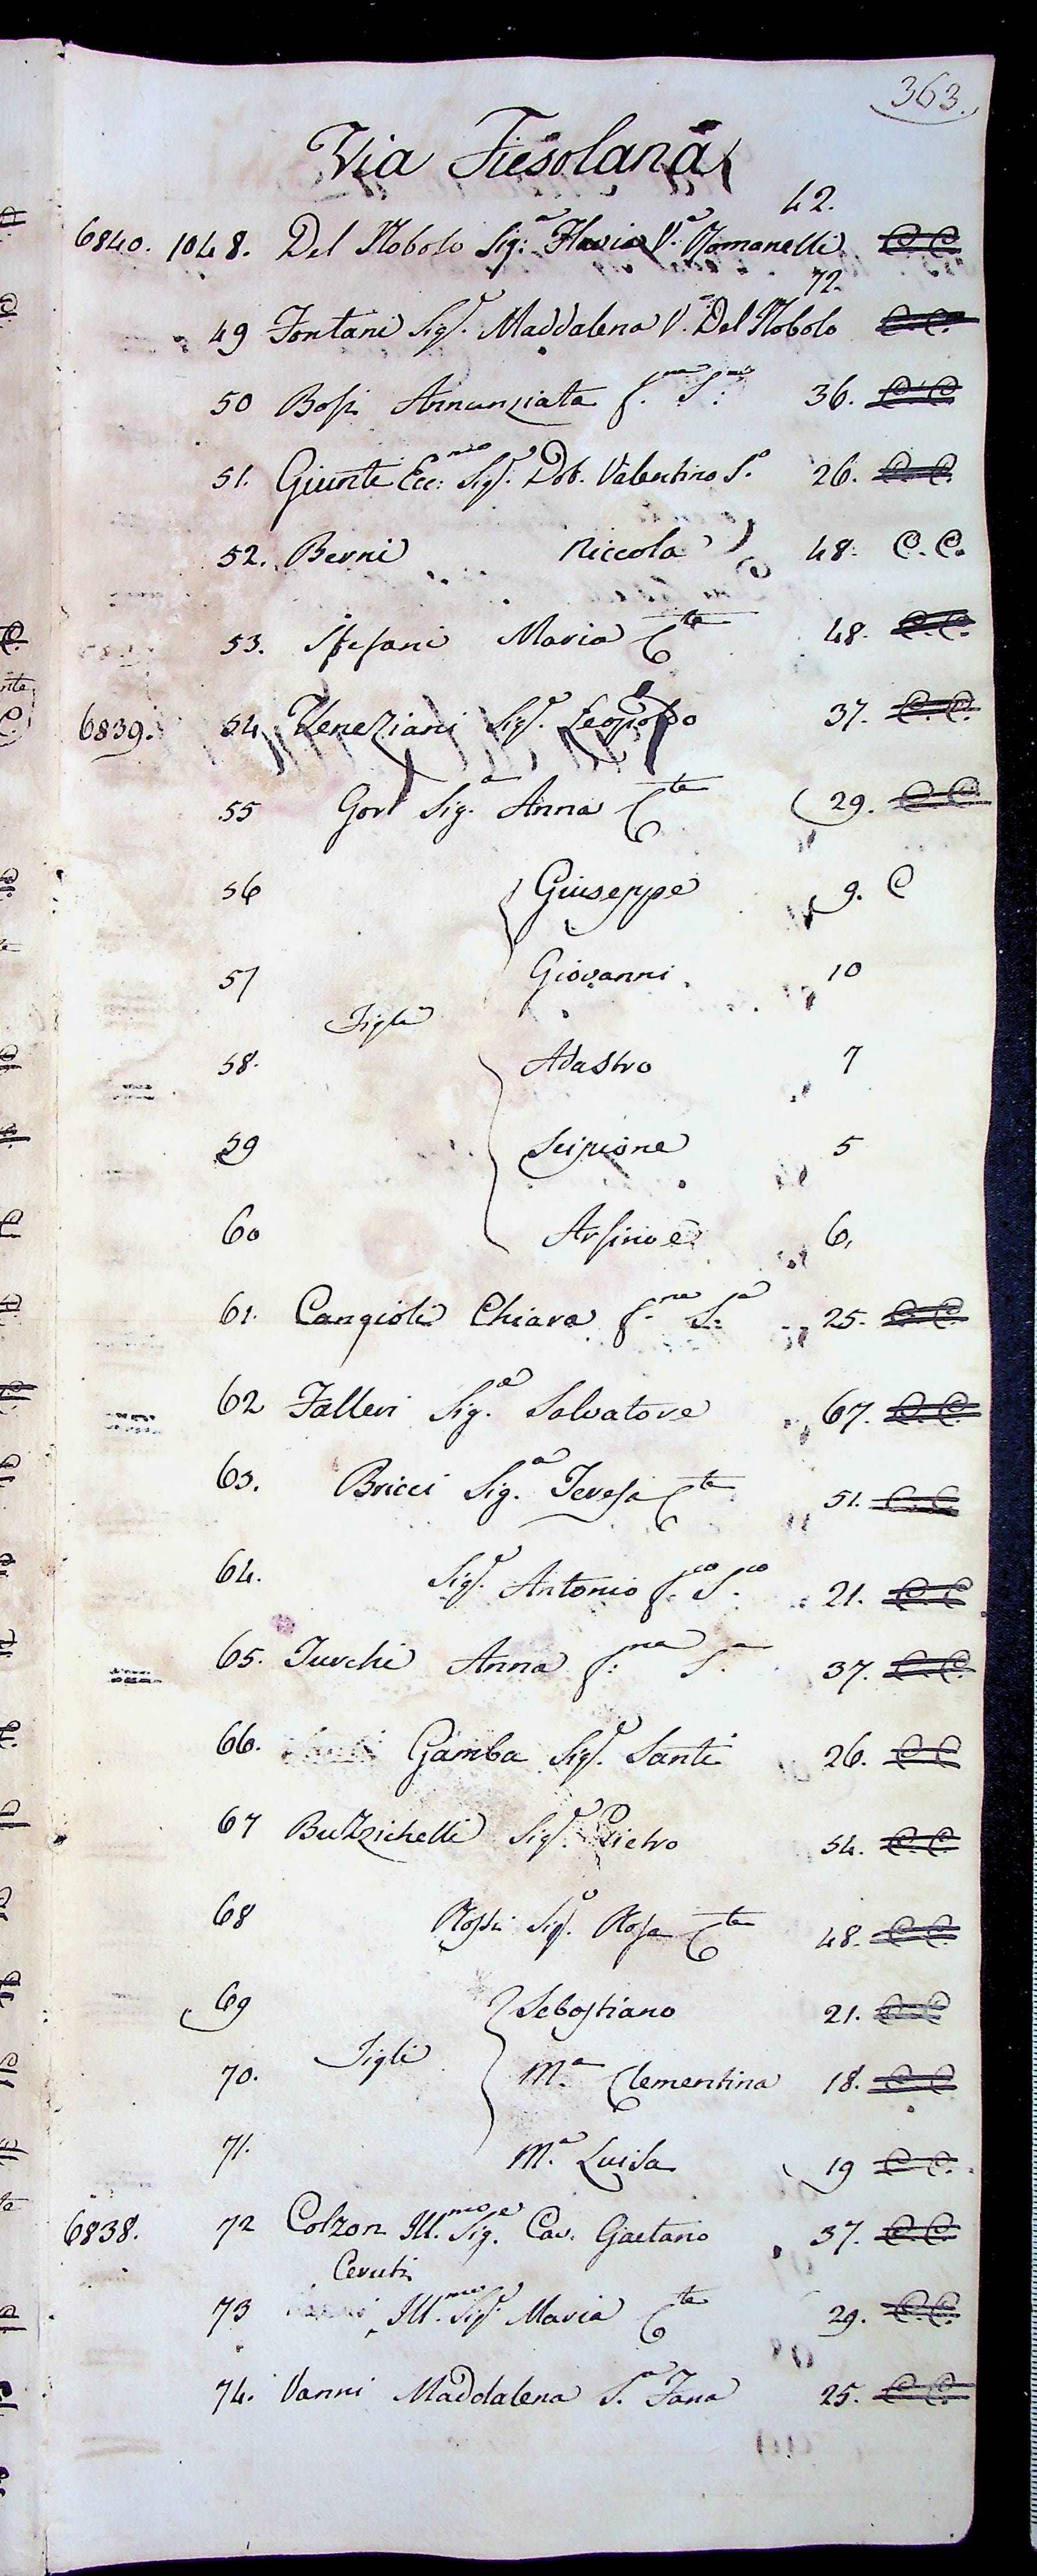 363.
Via Fiesolana
6840. 1048. Del Nobolo Sig:a Flavia V.a Romanelli 42. C.C.
49 Fontani Sig.ra Maddalena V.a Del Nobolo 72. C.C.
50 Bosi Annunziata f.na S.na 36. C.C.
51. Giunti Ecc:mo Sig.r Dot. Valentino S.o 26. C.C.
52. Berni Niccola 48. C.C.
53. Stefani Maria C.ta 48. C.C.
6839. 54 Veneziani Sig.r Leopoldo 37. C.C.
55 Gori Sig.a Anna C.ta 29. C.C.
56 Giuseppe 9. C
57 Giovanni 10
Figli
58. Adastro 7
59 Scipione 5
60 Arsinoe 6.
61. Cangioli Chiara f.na S:a 25. C.C.
62 Falleri Sig.e Salvatore 67. C.C.
63. Bricci Sig.a Teresa C.ta 51. C.C.
64. Sig.r Antonio f.co S.co 21. C.C
65. Turchi Anna f:na S.a 37. C.C.
66. Gamba Sig.r Santi 26. C C
67 Buzzichelli Sig.r Pietro 54. C.C.
68 Rossi Sig.a Rosa C.ta 48. C C.
69 Sebastiano 21. C C
Figli
70. M.a Clementina 18. C C
71. M.a Luisa 19 C C.
6838. 72 Colzon Ill.mo Sig.e Cav. Gaetano 37. C.C.
Ceruti
73 Ill.ma Sig.ra Maria C.ta 29. C.C.
74. Vanni Maddalena S.a Fana 25. C C.